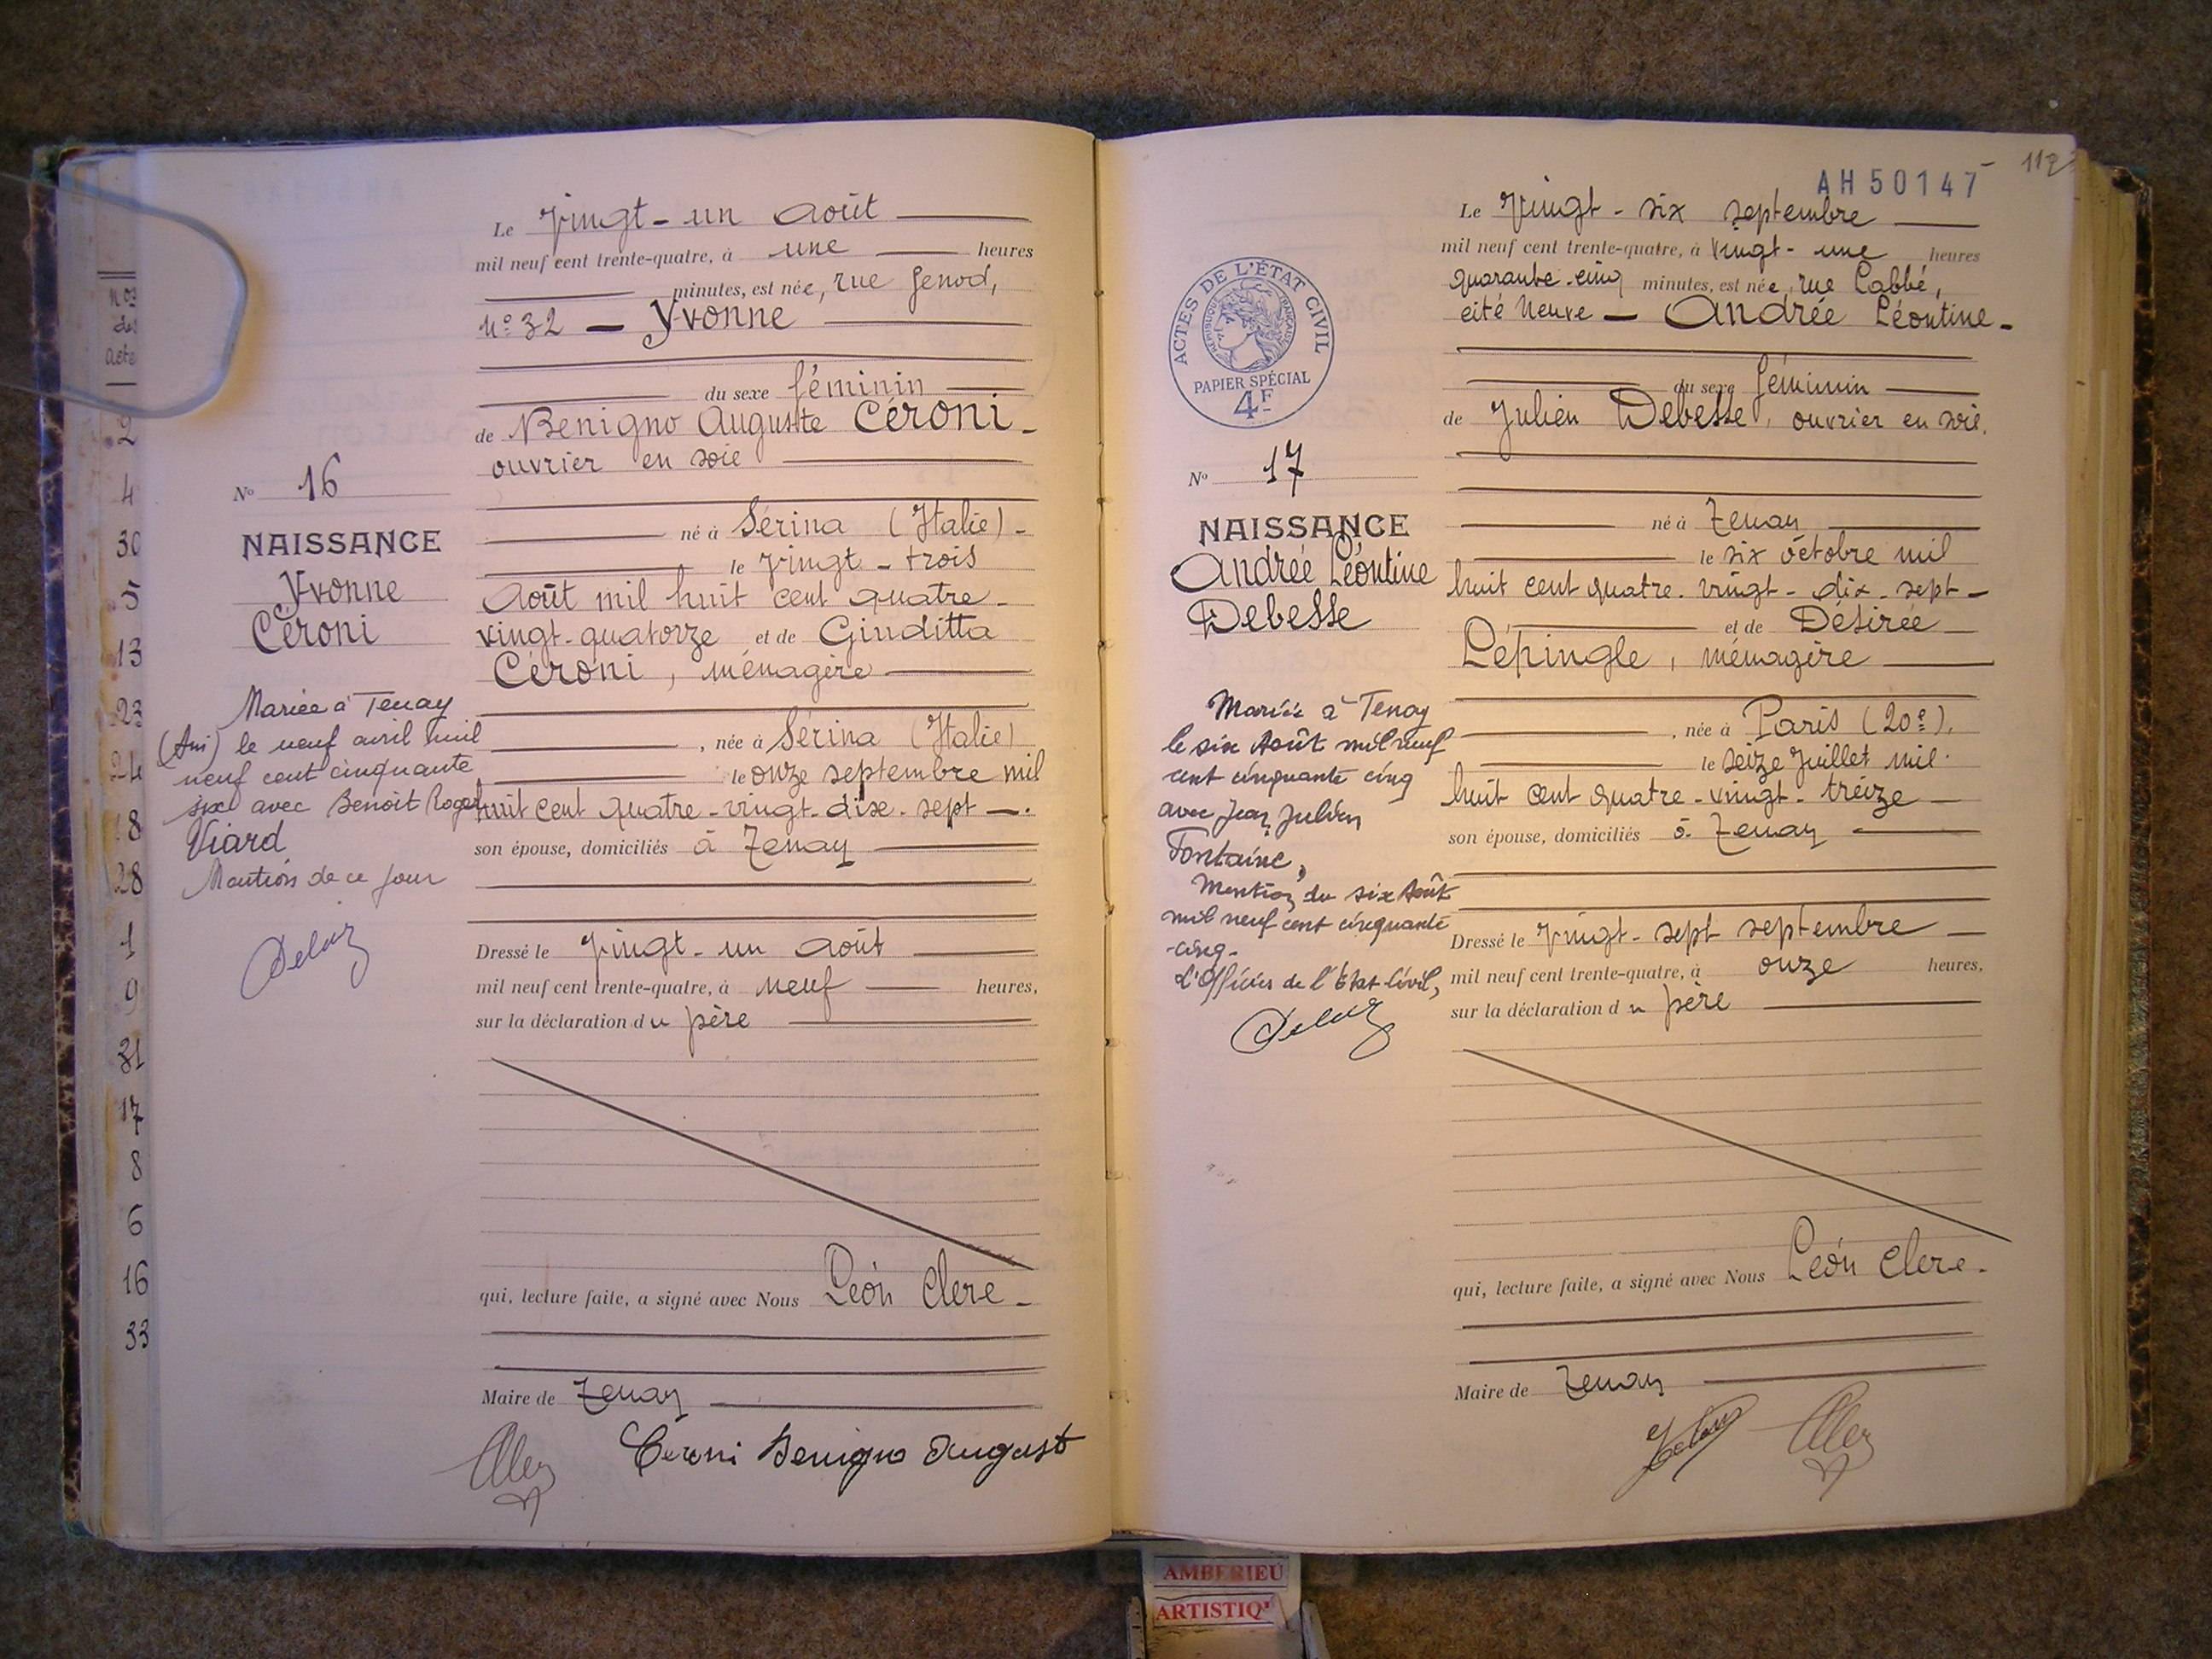 Nos
des
acte
2
4
30
5
13
23
24
18
28
1
9
31
17
8
6
16
33
Le Vingt-un août
mil neuf cent trente-quatre, à une heures
minutes, est née, rue Genod,
n° 32 — Yvonne
du sexe féminin
de Benigno Auguste Céroni -
ouvrier en soie
né à Sérina (Italie) -
le vingt-trois
Août mil huit cent quatre-
vingt-quatorze et de Giuditta
Céroni, ménagère
, née à Sérina (Italie)
le onze septembre mil
huit cent quatre-vingt-dix-sept -.
son épouse, domiciliés à Tenay
Dressé le vingt-un août
mil neuf cent trente-quatre, à neuf heures,
sur la déclaration du père
qui, lecture faite, a signé avec Nous Léon Clerc -
Maire de Tenay
Ceroni Benigno August
N° 16
NAISSANCE
Yvonne
Céroni
Mariée à Tenay
(Ain) le neuf avril mil
neuf cent cinquante
six avec Benoit Roger
Viard
Mention de ce jour
117
AH 50147
Le Vingt-six septembre
mil neuf cent trente-quatre, à vingt-une heures
quarante-cinq minutes, est née, rue Labbé,
cité Neuve — Andrée Léontine -
du sexe féminin
de Julien Debesse, ouvrier en soie.
né à Tenay
le six octobre mil
huit cent quatre-vingt-dix-sept -
et de Désirée
Lépingle, ménagère
, née à Paris (20e),
le seize juillet mil
huit cent quatre-vingt-treize
son épouse, domiciliés à Tenay
Dressé le vingt-sept septembre
mil neuf cent trente-quatre, à onze heures,
sur la déclaration du père
qui, lecture faite, a signé avec Nous Léon Clerc -
Maire de Tenay
ACTES DE L'ÉTAT CIVIL
RÉPUBLIQUE FRANÇAISE
PAPIER SPÉCIAL
4F
N° 17
NAISSANCE
Andrée Léontine
Debesse
Mariée à Tenay
le six Août mil neuf
cent cinquante cinq
avec Jean Julien
Fontaine,
Mention du six Août
mil neuf cent cinquante
-cinq-
L'Officier de l'État Civil,
AMBERIEU
ARTISTIQ'